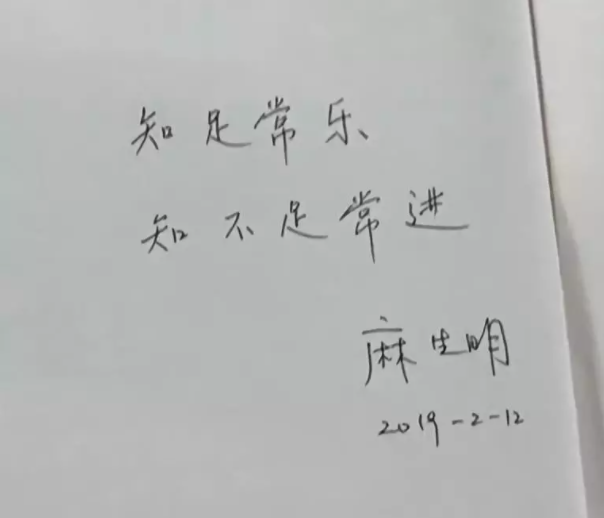 知足常乐
知不足常进
麻生明
2019-2-12